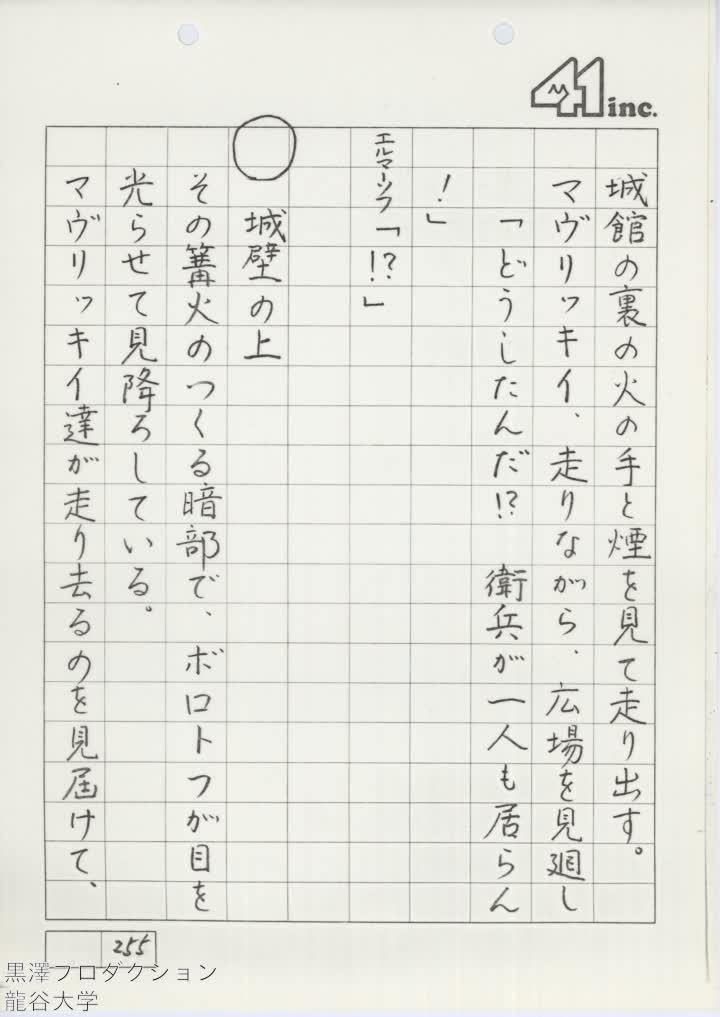 41 inc.
城館の裏の火の手と煙を見て走り出す。
マヴリッキイ、走りながら、広場を見廻し
「どうしたんだ!? 衛兵が一人も居らん
!」
エルマーソフ「!?」
○ 城壁の上
その篝火のつくる暗部で、ボロトフが目を
光らせて見降ろしている。
マヴリッキイ達が走り去るのを見届けて、
255
黒澤プロダクション
龍谷大学